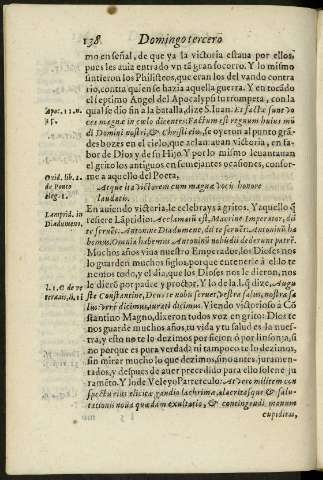 138 Domingo tercero
mo en señal, de que ya la victoria estaua por ellos,
pues les auia entrado vn tã gran socorro. Y lo mismo
sintieron los Philisteos, que eran los del vando contra
rio, contra quien se hazia aquella guerra. Y en tocãdo
el septimo Angel del Apocalypsi tu trompeta, con la
Apoc. 11. n.
15.
qual se dio fin a la batalla, dize S. Iuan: Et factæ sunt vo
ces magnæ in cœlo dicentes: Factum est regnum huius mũ
di Domini nostri, & Christi eius, se oyeron al punto grã-
des bozes en el cielo, que aclamauan victoria, en fa-
bor de Dios y de su Hijo. Y por lo mismo leuantauan
el grito los antiguos en semejantes ocasiones, confor-
Ouid. lib. 2.
de Ponto
eleg. 1.
me a aquello del Poeta.
Atque ita victorem cum magna vocis honore
laudatis.
Lamprid. in
Diadumeno.
En auiendo victoria, le celebrays a gritos. Y aquello q̃
refiere Lãpridio. Acclamatũ est, Macrine Imperator, dii
te seruẽt. Antonine Diadumene, dii te seruẽt. Antoninũ ha
bemus, Omnia habemus Antoninũ nobis dii dederunt patrẽ.
Muchos años viua nuestro Emperador, los Dioses nos
lo guarden muchos siglos, porque en tenerle a ello te
nemos todo, y el dia, que los Dioses nos le dieron, nos
l. 1. C. de ve
teranis, li. 12
le dierõ por padre y protector. Y lo de la l. q̃ dize, Augu
ste Constantine, Deus te nobis seruet, Vestra salus, nostra sa
lus: verè dicimus, iurati dicimus. Viendo victorioso a Cõ
stantino Magno, dixeron todos voz en grito: Dios te
nos guarde muchos años, tu vida y tu salud es la nues-
tra, y esto no te lo dezimos por ficion ó por lisonja, si
no porque es pura verdad: ni tampoco te lo dezimos,
sin mirar mucho lo que dezimos, sino antes juramen-
tados, y despues de auer precedido para ello solene ju
ramẽto. Y lo de Veleyo Paterculo: At vero militem con
spectu eius elicitæ gaudio lachrimæ, alacritasque & salu-
tationis noua quædam exultatio, & contingendi manum
cupiditas,